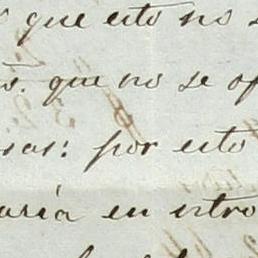 que esto no s
s. que no se op
sas: por esto
aría en otro